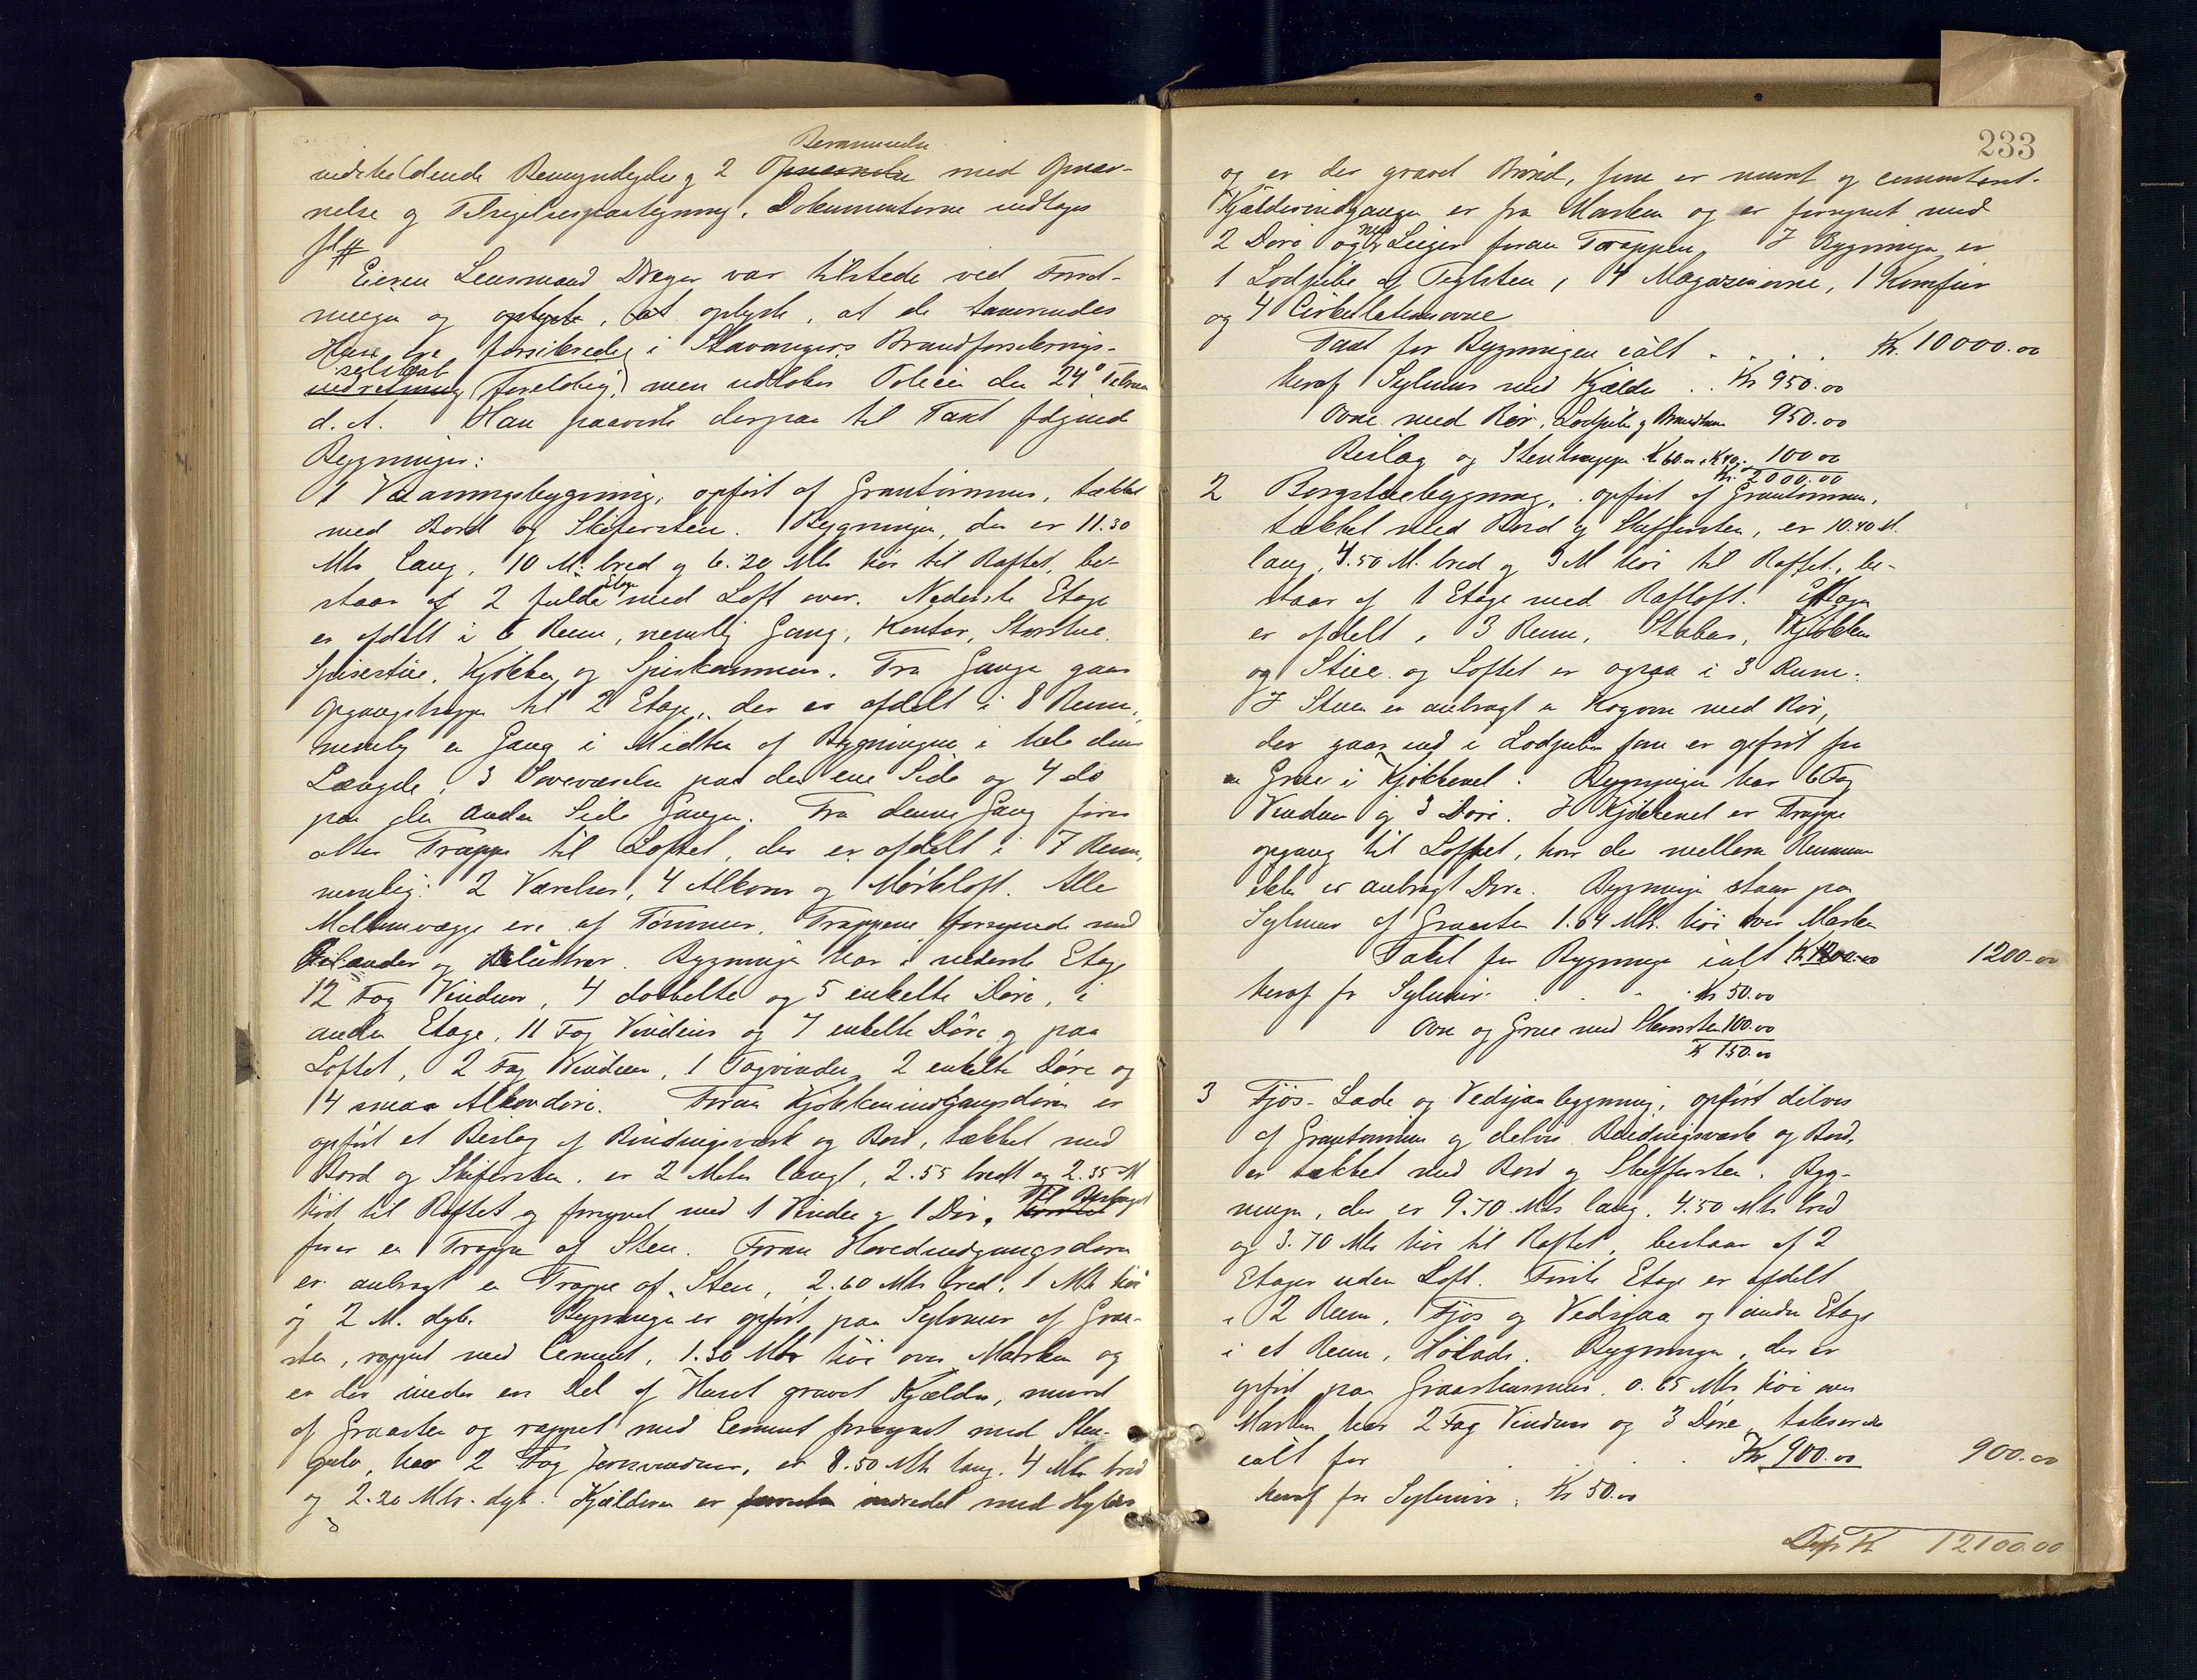 Berammelse
vedsheldende Bemyndigelse og 2 med Opnæv-
nelse og Tilsigelsespaategning. Dokumenterne indtages
Eieren Lensmand Dreger var tilstede ved Forret-
ningen og oplyste, at oplyste, at de taxerendes
Huse ere forsikrede i Stavangers Brandforsikrings-
selskab
indretning (foreløbig) men udløber Policen den 24de Februar
d. A. Han paaviste derpaa til Taxt følgende
Bygninger:
1 Vaaningsbygning, opført af Grantømmer, tækket
med Bord og Skifersten. Bygningen, der er 11.30
Mtr lang, 10 M. bred og 6.20 Mtr høi til Raftet, be-
staar af 2 fulde Etager med Loft over. Nederste Etage
er afdelt i 6 Rum, nemlig Gang, Kontor, Storstue
Spisestue, Kjøkken og Spiskammer. Fra Gangen gaar
Opgangstrappe til 2 Etage, der er afdelt i 8 Rum,
nemlig en Gang i Midten af Bygningen i hele dens
Længde, 3 Soveværelser paa den ene Side og 4 do
paa den anden Side Gangen. Fra denne Gang fører
atter Trappe til Loftet, der er afdelt i 7 Rum,
nemlig: 2 Værelser, 4 Alkover og Mørkloft. Alle
Mellemvægge ere af Tømmer, Trapperne forsynede med
og Bygningen har i nederste Etage
12 Fag Vinduer, 4 dobbelte og 5 enkelte Døre, i
anden Etage, 11 Fag Vinduer og 7 enkelte Døre og paa
Loftet, 2 Fag Vinduer, 1 Tagvindu, 2 enkelte Døre og
4 smaa Alkovdøre. Foran Kjøkkenindgangsdøren er
opført et Beslag af Bindingsværk og Bord, tækket med
Bord og Skifersten, er 2 Meter langt, 2.55 bredt og 2.35 M
høit til Raftet og forsynet med 1 Vindu og 1 Dør. Til Beslaget
fører en Trappe af Sten. Foran Hovedindgangsdøren
er anbragt en Trappe af Sten, 2.60 Mtr bred, 1 Mtr høi
og 2 M. dyb. Bygningen er opført paa Sylmur af Graa-
sten, rappet med Cement, 1.30 Mtr høi over Marken og
er der under en Del af Huset gravet Kjælder, muret
af Graasten og rappet med Cement forsynet med Sten-
gulv, har 2 Fag Jernvinduer, er 8.50 Mtr lang, 4 Mtr bred
og 2.20 Mtr. dyb. Kjælderen er indredet med Hylder
233
og er der gravet Brønd, som er muret og cementeret.
Kjælderindgangen er fra Marken og er forsynet med
2 Døre og foran Trappen. I Bygningen er
1 Lodpibe af Teglsten, 4 Magasinovne, 1 Komfur
og 4 Cirkulationsovne
Taxt for Bygningen ialt . . . . Kr. 10000.00
heraf Sylmur med Kjælder . . Kr 950.00
Ovne med Rør, Lodpibe og Brandmur 950.00
Beslag og Stentrappe Kr 60.00 + Kr 40,- 100.00
Kr. 2000.00
2 Borgstuebygning, opført af Grantømmer,
tækket med Bord og Skiffersten, er 10.40 M.
lang, 4.50 M. bred og 3 M høi til Raftet, be-
staar af 1 Etage med Rafloft. Etagen
er afdelt i 3 Rum, Stabur, Kjøkken
og Stue og Loftet er ogsaa i 3 Rum.
I Stuen er anbragt en Kogovn med Rør,
der gaar ind i Lodpiben som er opført fra
en Grue i Kjøkkenet. Bygningen har 6 Fag
Vinduer og 3 Døre. I Kjøkkenet er Trappe
opgang til Loftet, hvor der mellem Rummene
ikke er anbragt Døre. Bygningen staar paa
Sylmur af Graasten 1.04 Mtr. høi over Marken
Taxt for Bygningen ialt Kr 1200.00 1200.00
heraf for Sylmur . . . . Kr 50.00
Ovn og Grue med Skorsten 100.00
Kr 150.00
3 Fjøs- Lade og Vedsjaabygning, opført delvis
af Grantømmer og delvis Bindingsværk og Bord,
er tækket med Bord og Skiffersten. Byg-
ningen, der er 9.70 Mtr lang, 4.50 Mtr bred
og 3.70 Mtr høi til Raftet, bestaar af 2
Etager uden Loft. Første Etage er afdelt
i 2 Rum, Fjøs og Vedsjaa og anden Etage
i et Rum, Hølade. Bygningen, der er
opført paa Graastensmur, 0.65 Mtr høi over
Marken har 2 Fag Vinduer og 3 Døre, takseredes
ialt for . . . . Kr 900.00 900.00
heraf for Sylmur, Kr 50.00
Kr 12100.00